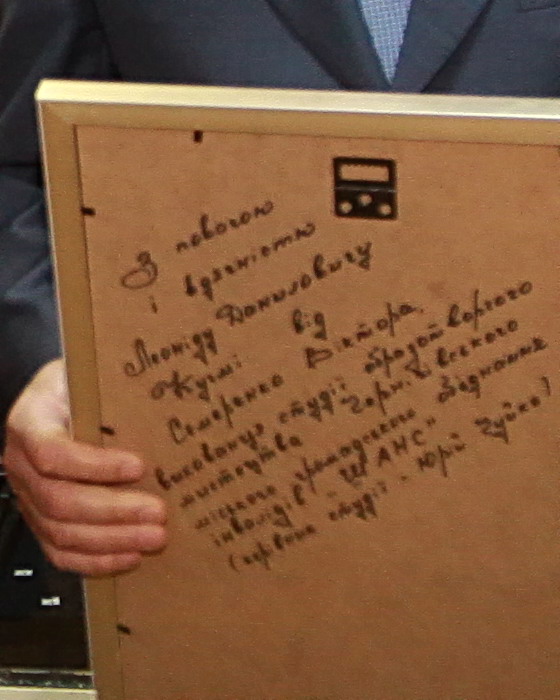 З повагою
і вдячністю
Леоніду Даниловичу
Кучмі від
Семеренко Віктора,
вихованця студії образотворчого
мистецтва Чернігівського
міського громадського об'єднання
інвалідів "ШАНС"
(керівник студії - Юрій Чуйко)